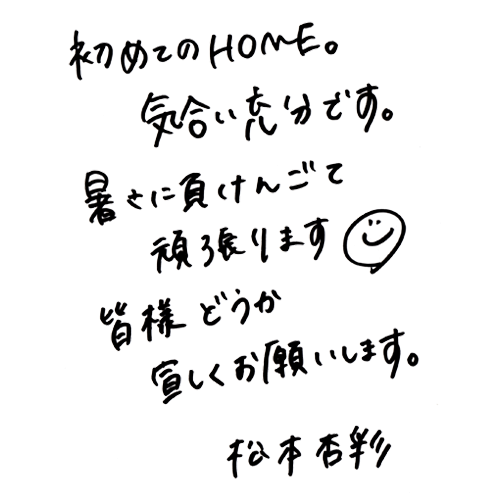 初めてのHOME。
気合い充分です。
暑さに負けんごて
頑張ります
皆様どうか
宜しくお願いします。
松本杏彩